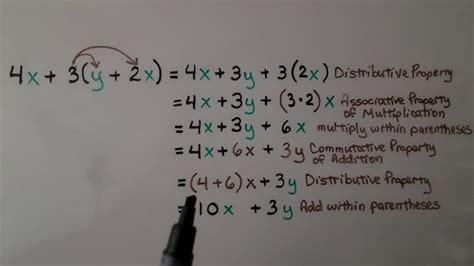 4x + 3(y + 2x) = 4x + 3y + 3(2x) Distributive Property
= 4x + 3y + (3·2)x Associative Property of Multiplication
= 4x + 3y + 6x multiply within parentheses
= 4x + 6x + 3y Commutative Property of Addition
= (4+6)x + 3y Distributive Property
= 10x + 3y Add within parentheses